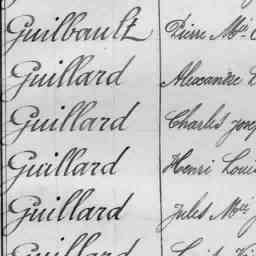 Guilbault Pierre
Guillard Alexandre
Guillard Charles
Guillard Henri Louis
Guillard Jules
Guillard